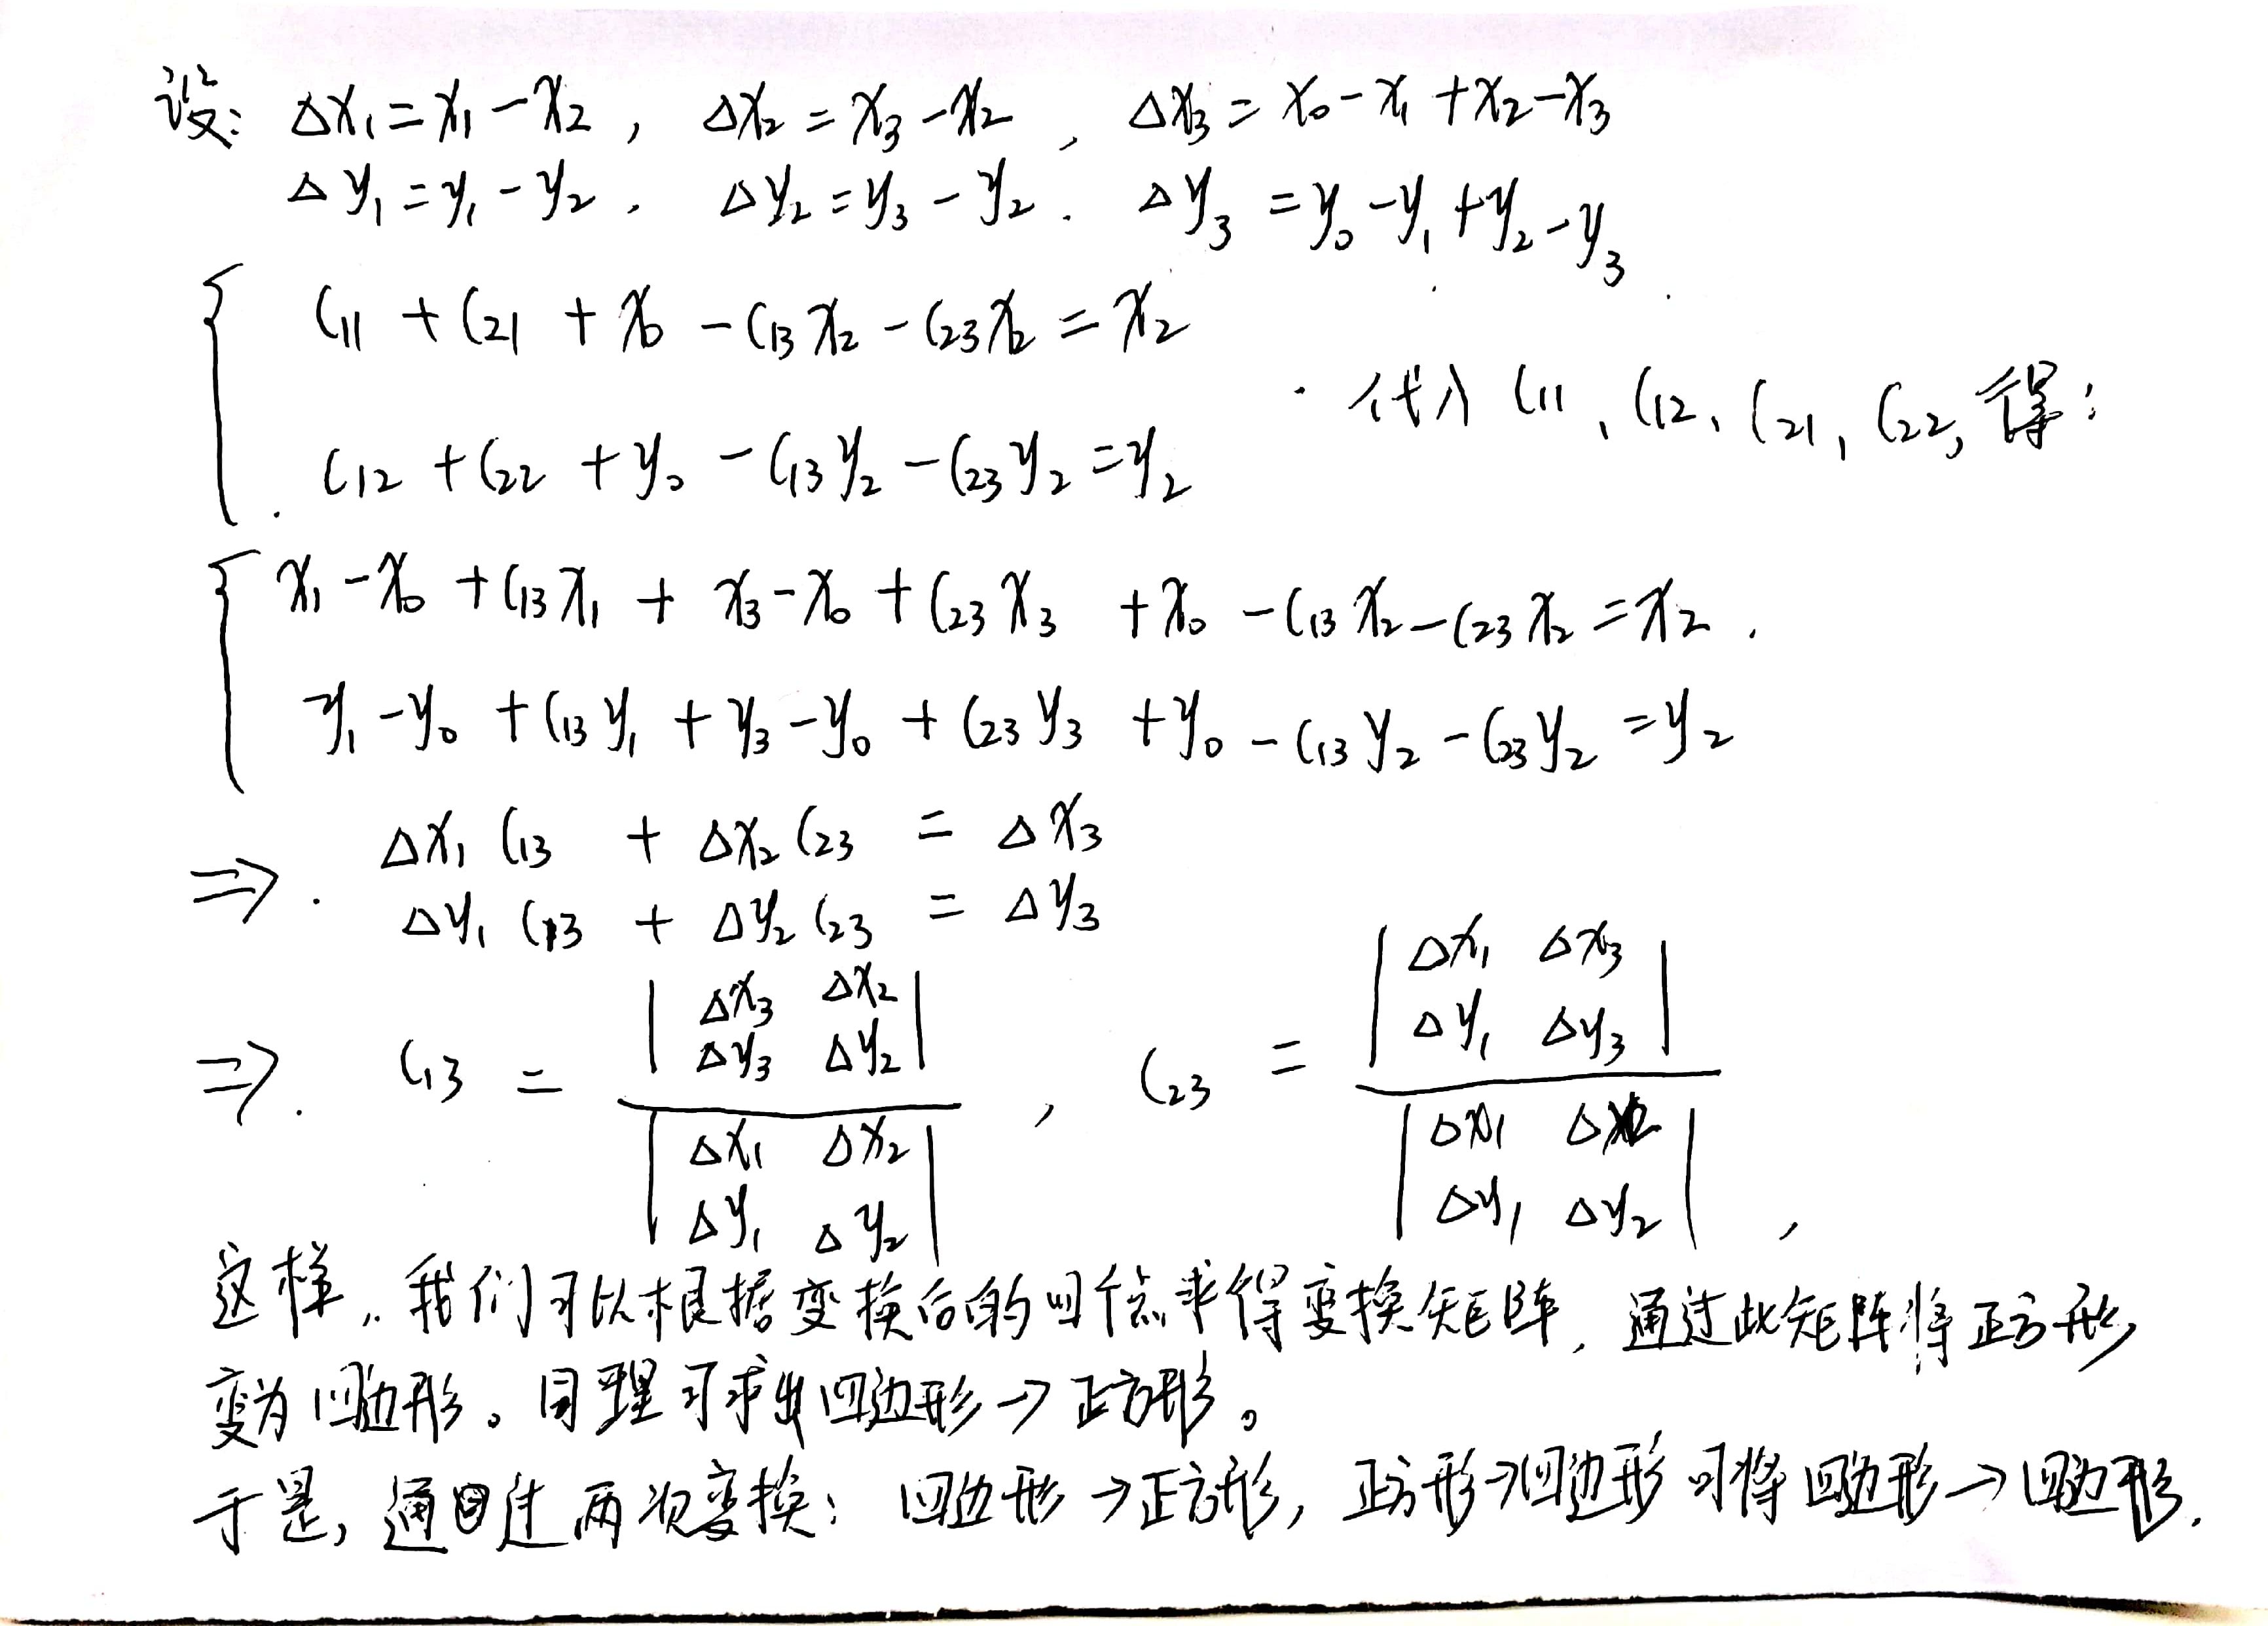 设: Δx₁ = x₁ - x₂ , Δx₂ = x₃ - x₂ , Δx₃ = x₀ - x₁ + x₂ - x₃
Δy₁ = y₁ - y₂ , Δy₂ = y₃ - y₂ . Δy₃ = y₀ - y₁ + y₂ - y₃ .
{ C₁₁ + C₂₁ + x₀ - C₁₃x₂ - C₂₃x₂ = x₂
代入 C₁₁、C₁₂、C₂₁, C₂₂, 得:
C₁₂ + C₂₂ + y₀ - C₁₃y₂ - C₂₃y₂ = y₂
{ x₁ - x₀ + C₁₃x₁ + x₃ - x₀ + C₂₃x₃ + x₀ - C₁₃x₂ - C₂₃x₂ = x₂ .
y₁ - y₀ + C₁₃y₁ + y₃ - y₀ + C₂₃y₃ + y₀ - C₁₃y₂ - C₂₃y₂ = y₂
⇒. Δx₁ C₁₃ + Δx₂ C₂₃ = Δx₃
Δy₁ C₁₃ + Δy₂ C₂₃ = Δy₃
⇒. C₁₃ = | Δx₃ Δx₂ ; Δy₃ Δy₂ | / | Δx₁ Δx₂ ; Δy₁ Δy₂ | , C₂₃ = | Δx₁ Δx₃ ; Δy₁ Δy₃ | / | Δx₁ Δx₂ ; Δy₁ Δy₂ | ,
这样, 我们可以根据变换后的四个点求得变换矩阵, 通过此矩阵将正方形
变为四边形。同理可求出四边形→正方形。
于是, 通过两次变换: 四边形→正方形, 正方形→四边形可将四边形→四边形.